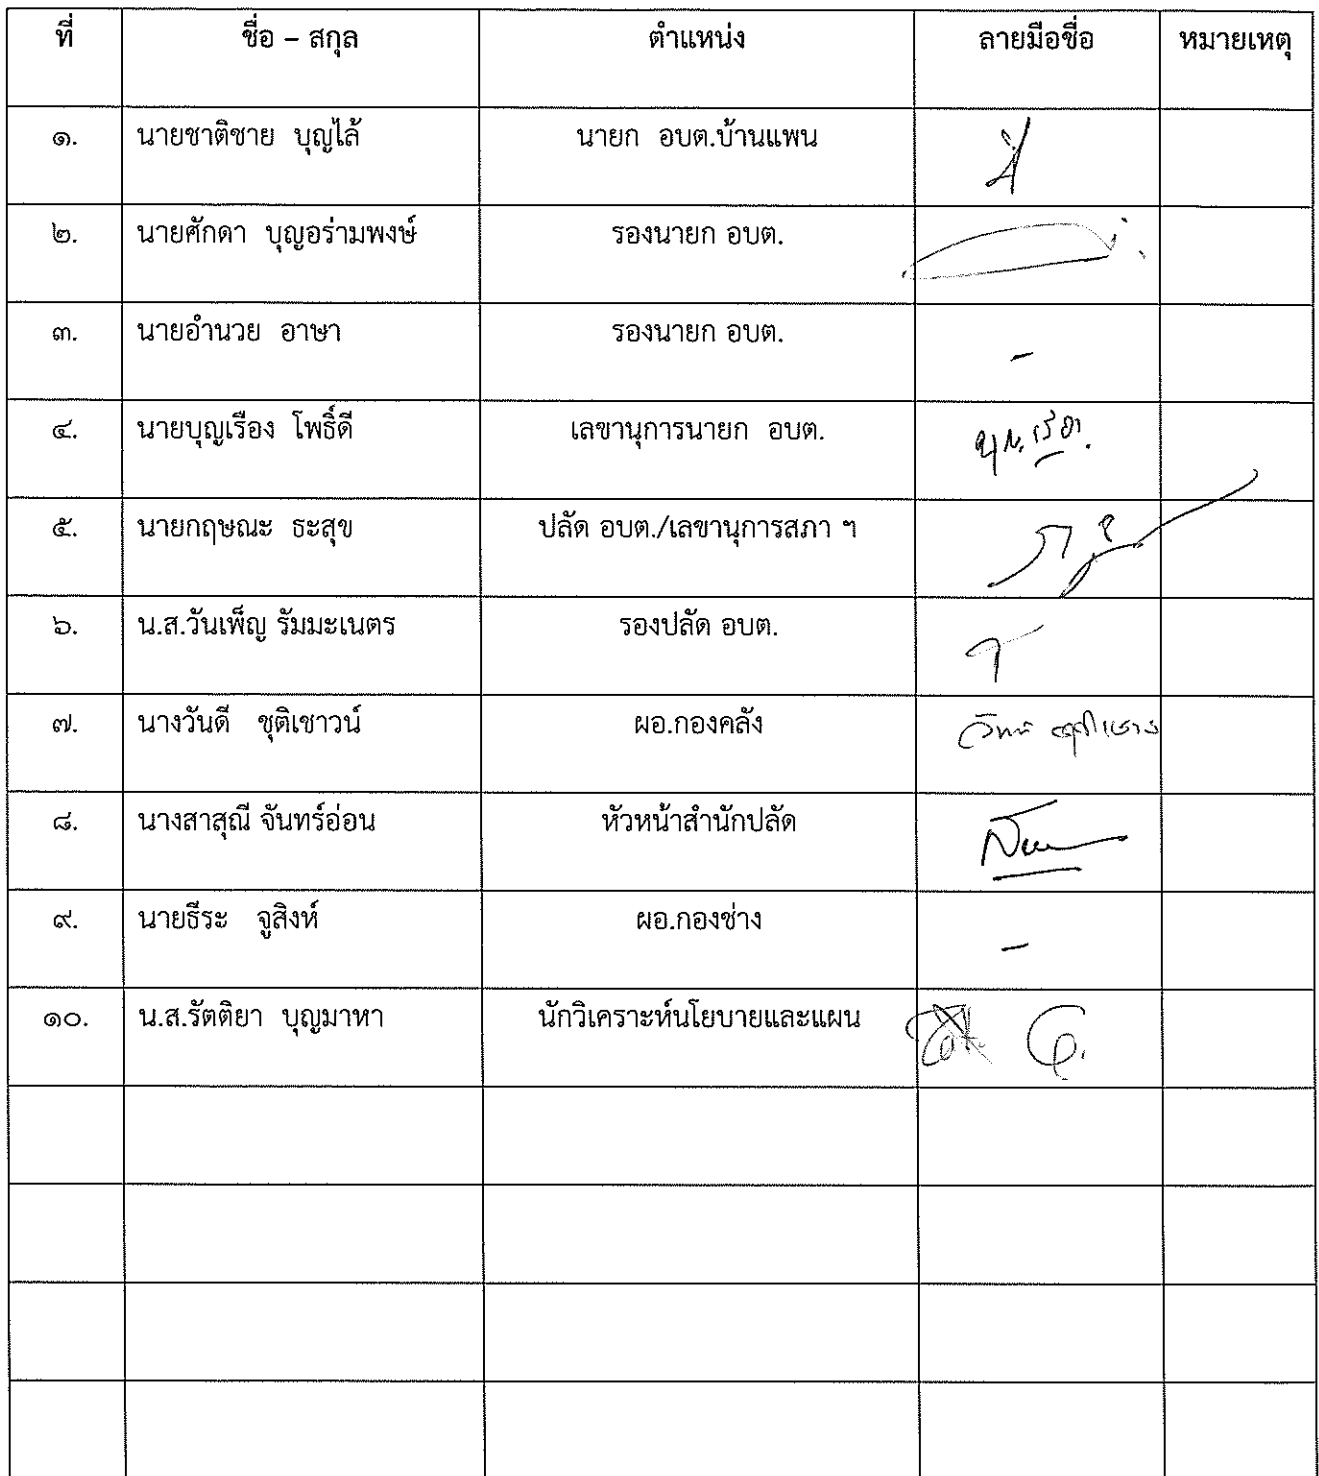 ที่ ชื่อ – สกุล ตำแหน่ง ลายมือชื่อ หมายเหตุ
๑. นายชาติชาย บุญไล้ นายก อบต.บ้านแพน
๒. นายศักดา บุญอร่ามพงษ์ รองนายก อบต.
๓. นายอำนวย อาษา รองนายก อบต. -
๔. นายบุญเรือง โพธิ์ดี เลขานุการนายก อบต.
๕. นายกฤษณะ ธะสุข ปลัด อบต./เลขานุการสภา ฯ
๖. น.ส.วันเพ็ญ รัมมะเนตร รองปลัด อบต.
๗. นางวันดี ชุติเชาวน์ ผอ.กองคลัง
๘. นางสาสุณี จันทร์อ่อน หัวหน้าสำนักปลัด
๙. นายธีระ จูสิงห์ ผอ.กองช่าง -
๑๐. น.ส.รัตติยา บุญมาหา นักวิเคราะห์นโยบายและแผน